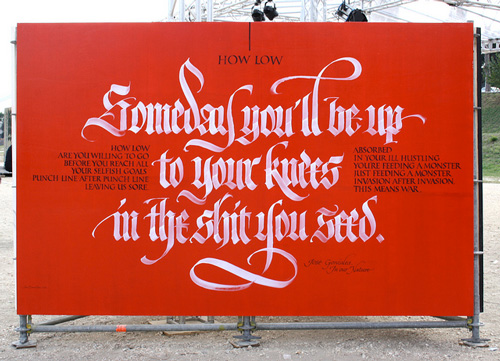 HOW LOW
Someday you'll be up
to your knees
in the shit you seed.
HOW LOW
ARE YOU WILLING TO GO
BEFORE YOU REACH ALL
YOUR SELFISH GOALS
PUNCH LINE AFTER PUNCH LINE
LEAVING US SORE
ABSORBED
IN YOUR ILL HUSTLING
YOU'RE FEEDING A MONSTER
JUST FEEDING A MONSTER
INVASION AFTER INVASION
THIS MEANS WAR.